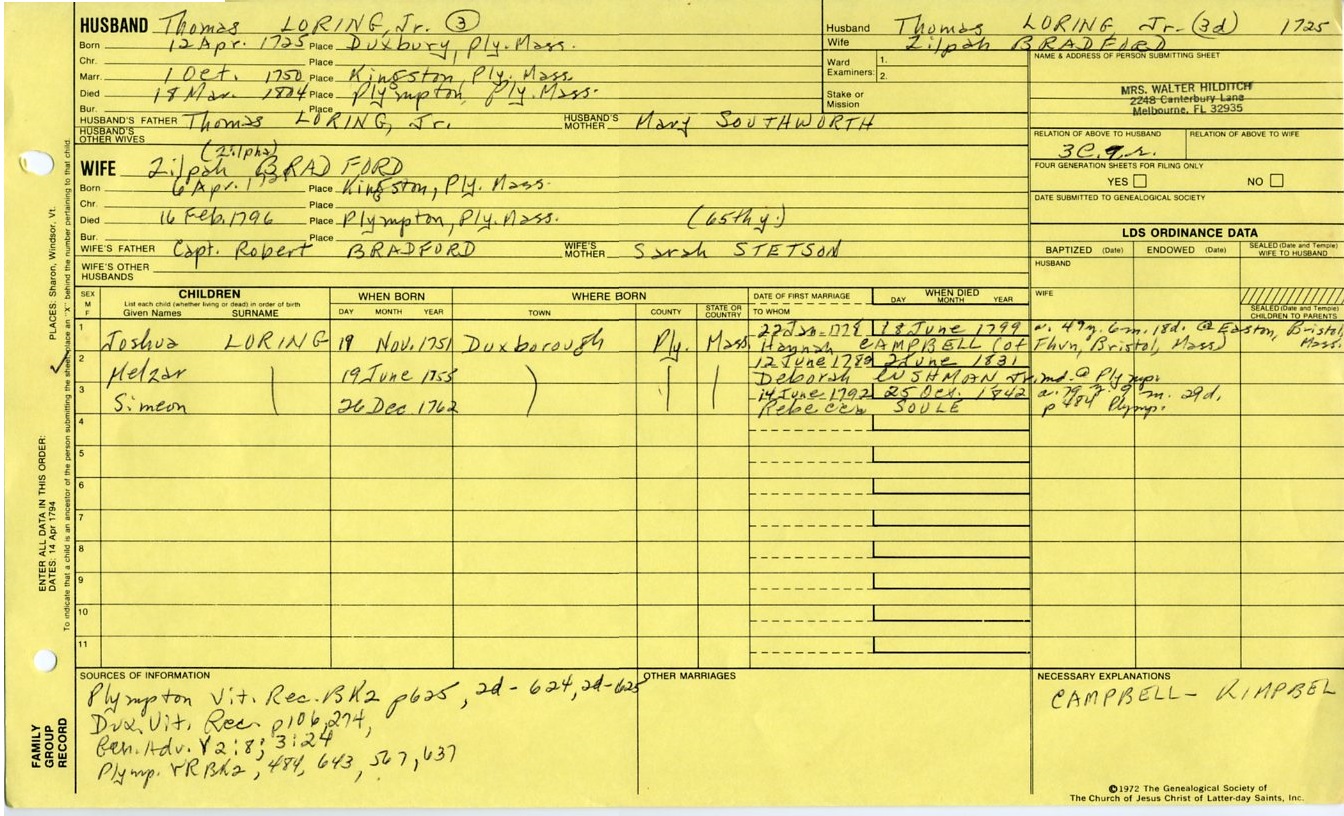 HUSBAND Thomas LORING, Jr. (3)
Born 12 Apr. 1725 Place Duxbury, Ply. Mass.
Chr. Place
Marr. 1 Oct. 1750 Place Kingston, Ply. Mass.
Died 18 Mar. 1804 Place Plympton, Ply. Mass.
Bur. Place
HUSBAND'S FATHER Thomas LORING, Jr. HUSBAND'S MOTHER Mary SOUTHWORTH
HUSBAND'S OTHER WIVES
Husband Thomas LORING Jr. (3d) 1725
Wife Zilpah BRADFORD
Ward Examiners: 1.
2.
Stake or Mission
NAME & ADDRESS OF PERSON SUBMITTING SHEET
MRS. WALTER HILDITCH
2248 Canterbury Lane
Melbourne, FL 32935
RELATION OF ABOVE TO HUSBAND RELATION OF ABOVE TO WIFE
FOUR GENERATION SHEETS FOR FILING ONLY
YES NO
DATE SUBMITTED TO GENEALOGICAL SOCIETY
(Zilpha)
WIFE Zilpah BRADFORD
Born 6 Apr. Place Kingston, Ply. Mass.
Chr. Place
Died 16 Feb. 1796 Place Plympton, Ply. Mass. (65th y.)
Bur. Place
WIFE'S FATHER Capt. Robert BRADFORD WIFE'S MOTHER Sarah STETSON
WIFE'S OTHER HUSBANDS
LDS ORDINANCE DATA
BAPTIZED (Date) ENDOWED (Date) SEALED (Date and Temple) WIFE TO HUSBAND
HUSBAND
WIFE
SEALED (Date and Temple) CHILDREN TO PARENTS
SEX M F
CHILDREN
List each child (whether living or dead) in order of birth
Given Names SURNAME
WHEN BORN
DAY MONTH YEAR
WHERE BORN
TOWN COUNTY STATE OR COUNTRY
DATE OF FIRST MARRIAGE
TO WHOM
WHEN DIED
DAY MONTH YEAR
1 Joshua LORING 19 Nov. 1751 Duxborough Ply. Mass 18 June 1799 a. 47y. 6m. 18d. @ Easton, Bristol, Mass.
Hannah CAMPBELL (of Fhvn, Bristol, Mass)
2 Melzar 19 June 1755 2 June 1831
Deborah CUSHMAN
3 Simeon 26 Dec. 1762 14 June 1792 25 Oct. 1842 a. 79 y 9 m. 29d,
Rebecca SOULE p 484 Plymp.
4
5
6
7
8
9
10
11
SOURCES OF INFORMATION
Plympton Vit. Rec. BK2 p625, 2d-624, 2d-625
Dux. Vit. Rec. p106, 274,
Gen. Adv. V2:8; 3:24
Plymp. VR BK2, 484, 643, 567, 637
OTHER MARRIAGES
NECESSARY EXPLANATIONS
CAMPBELL - KIMPBEL
©1972 The Genealogical Society of
The Church of Jesus Christ of Latter-day Saints, Inc.
FAMILY GROUP RECORD
ENTER ALL DATA IN THIS ORDER:
DATES: 14 Apr 1794
PLACES: Sharon, Windsor, Vt.
To indicate that a child is an ancestor of the person submitting the sheet, place an "X" behind the number pertaining to that child.